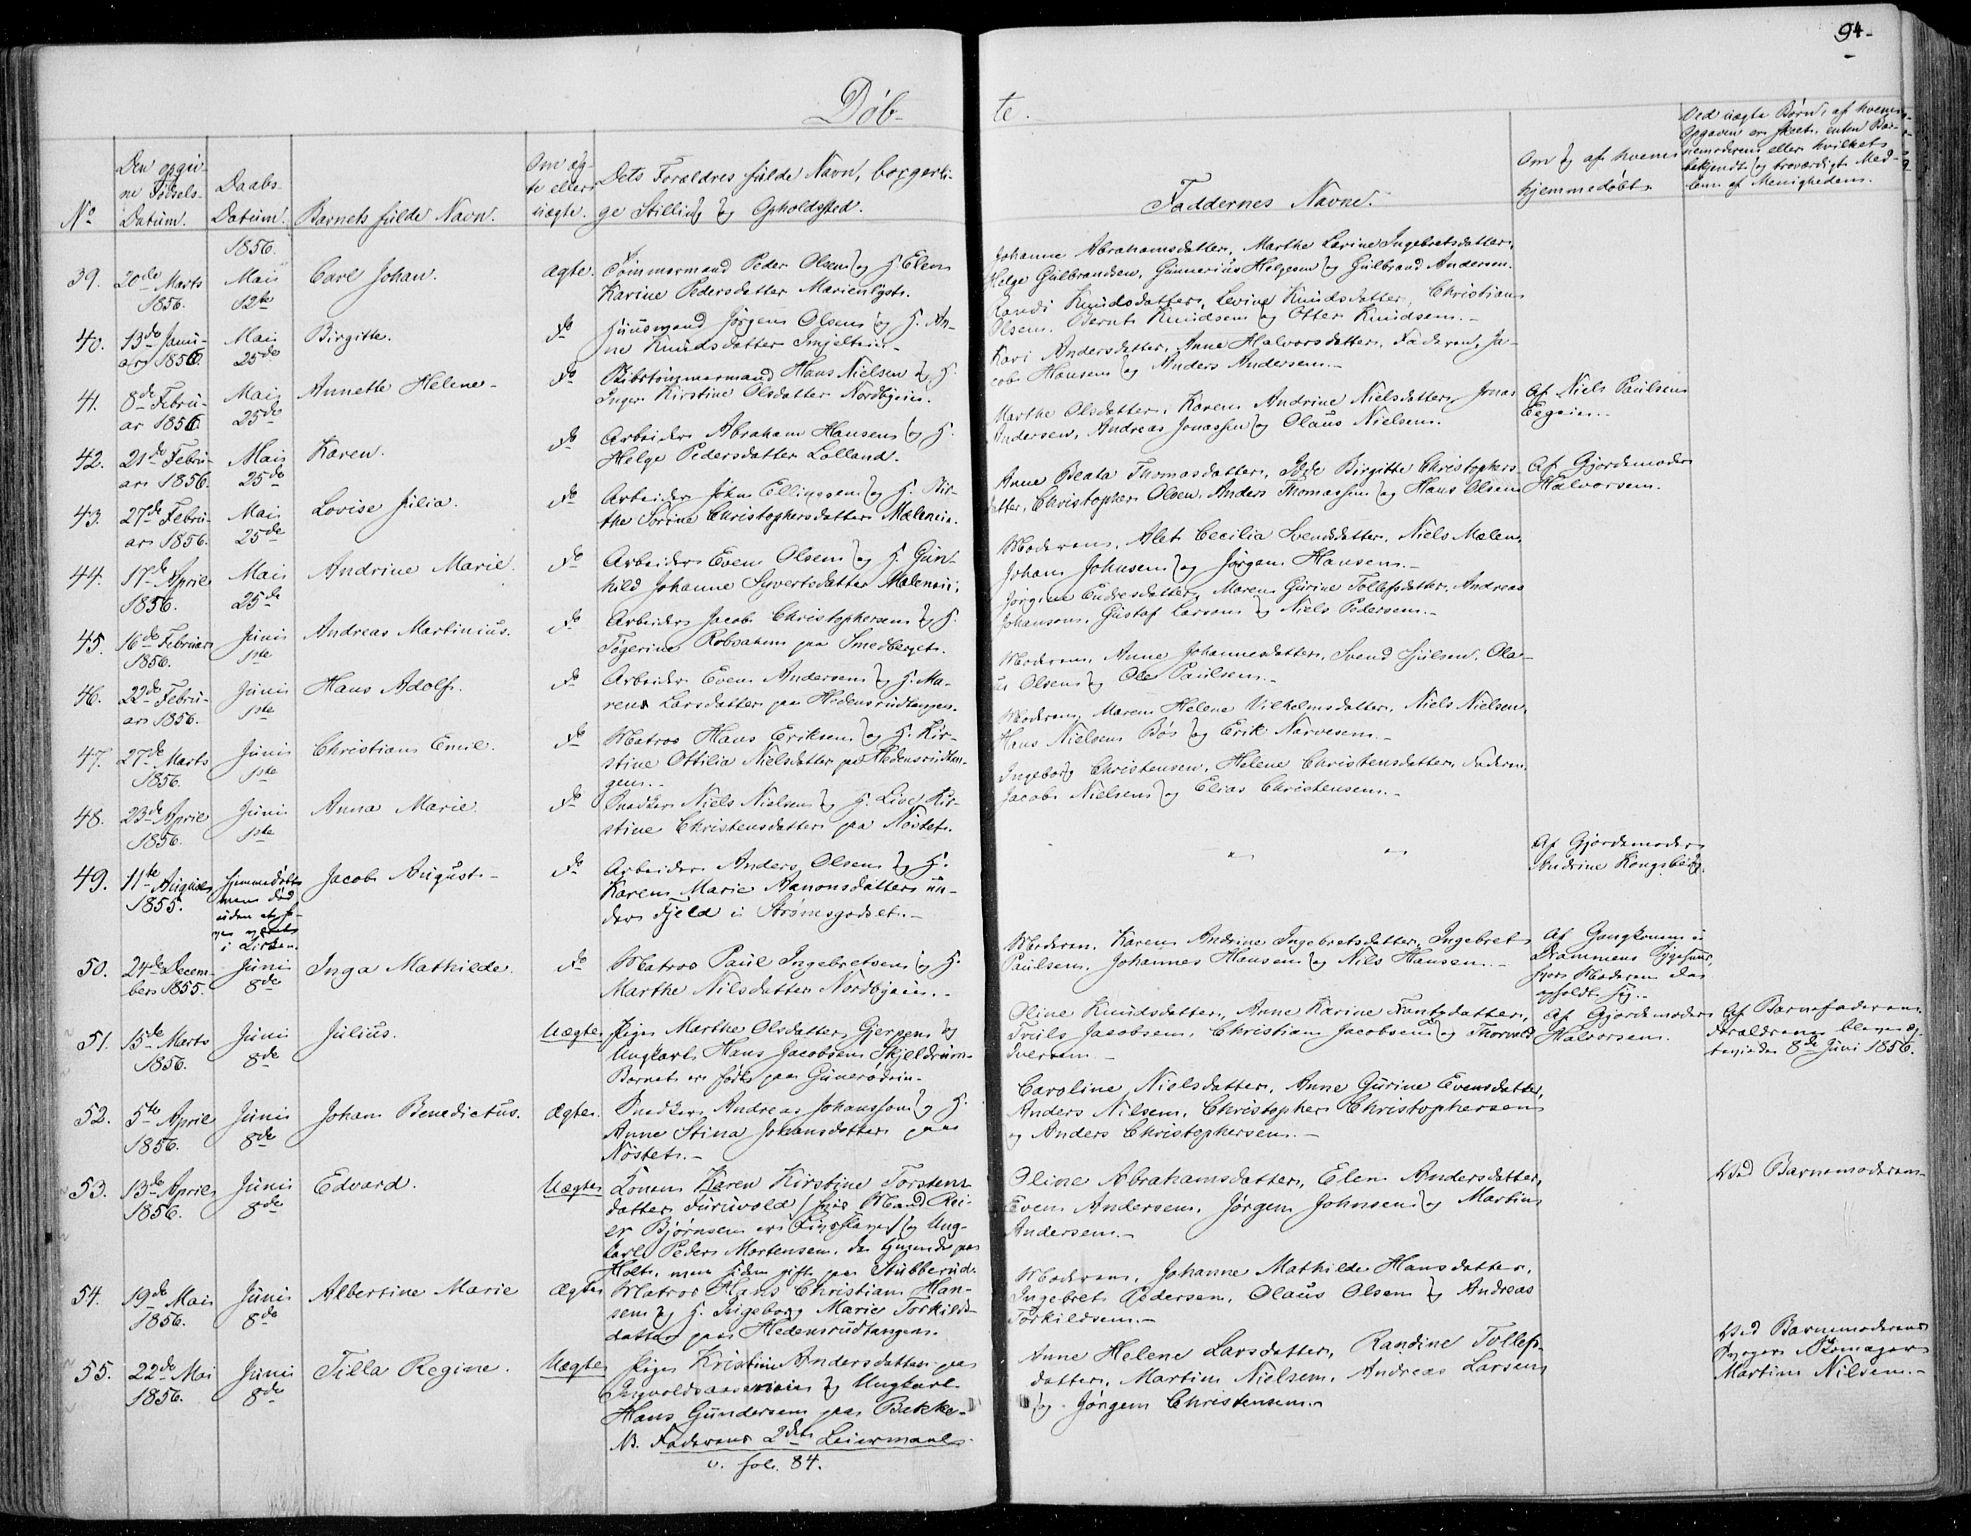 94.
Döb-
te.
No
Den opgiv-
ne Fødsels-
Datum.
Daabs-
Datum.
Barnets fulde Navn.
Om æg-
te eller
uægte.
Dets Forældres fulde Navn, borgerli-
ge Stilling og Opholdssted.
Faddernes Navne.
Om og af hvem
hjemmedöbt.
Ved uægte Børn, af hvem
Opgaven er skeet, enten Bar-
nemoderen eller hvilket
bekjendt og troværdigt Med-
lem af Menigheden.
1856.
39.
20de Marts
1856.
Mai
12te
Carl Johan.
ægte.
Tömmermand Peder Olsen og H. Elen
Karine Pedersdatter Marienlyst.
Johanne Abrahamsdatter, Marthe Larine Ingebretsdatter,
Helge Gulbrandsen, Gunnerius Helgesen og Gulbrand Andersen.
40.
13de Janu-
ar 1856.
Mai
25de
Birgitte.
do
Huusmand Jörgen Olsen og H. An-
ne Knudsdatter
Randi Knudsdatter, Levine Knudsdatter, Christian
Olsen, Bernt Knudsen og Otter Knudsen.-
41.
8de Febru-
ar 1856.
Mai
25de
Annette Helene-
do
Skibstömmermand Hans Nielsen og H.
Inger Kirstine Olsdatter Nordbyeie.
Kari Andersdatter, Anne Halvorsdatter, Faderen, Ja-
cob Hansen og Anders Andersen.-
42.
21de Febru-
ar 1856.
Mai
25de
Karen.
do
Arbeider Abraham Hansen og H.
Helge Pedersdatter Lolland.
Marthe Olsdatter, Karen Andrine Nielsdatter, Jonas
Andersen, Andreas Jonassen og Olaus Nielsen.
Af Niels Paulsen
Egeie.-
43.
27de Febru-
ar 1856.
Mai
25de
Lovise Julia.
do
Arbeider John Ellingsen og H. Bir-
the Sorine Christophersdatter Mæleneie.
Anne Beata Thomasdatter, Birgitte Christophers-
datter, Christopher Olsen, Anders Thomassen og Hans Olsen
Af Gjordemoder
Halvorsen.
44.
17de April
1856.
Mai
25de
Andrine Marie.
do
Arbeider Even Olsen og H. Gun-
hild Johanne Syvertsdatter Mæleneie.
Moderen, Alet Cecilia Svendsdatter, Niels Mælen,
Johan Johnsen og Jörgen Hansen.-
45.
16de Februar
1856.
Juni
1ste
Andreas Martinius.
do
Arbeider Jacob Christophersen og H.
Togerine Robsahm paa Smedberget.
Jörgine Endresdatter, Maren Gurine Tollefsdatter, Andreas
Johansen, Gustaf Larsen og Niels Pedersen.-
46.
22de Febru-
ar 1856.
Juni
1ste
Hans Adolf.
do
Arbeider Even Andersen og H. Ma-
ren Larsdatter paa Hedensrudtangen.
Moderen, Anne Johannesdatter, Svend Juelsen, Ola-
us Olsen og Ole Paulsen.-
47.
27de Marts
1856.
Juni
1ste
Christian Emil.
do
Matros Hans Eriksen og H. Kir-
stine Ottilia Nielsdatter paa Hedensrudtan-
gen.-
Moderen, Maren Helene Vilhelmsdatter, Niels Nielsen,
Hans Nielsen Bös og Erik Narvesen.-
48.
23de April
1856.
Juni
1ste
Anna Marie.
do
Snedker Niels Nielsen og H. Live Kir-
stine Christensdatter paa Nöstet.
Ingeborg Christensen, Helene Christensdatter, Faderen,
Jacob Nielsen og Elias Christensen.-
49.
11te August
1855.
hjemmedöbt
men död
uden at
i Kirken.
Jacob August.-
do
Arbeider Anders Olsen og H.
Karen Marie Aanonsdatter un-
der Fjeld i Strömsgodset.-
" "
Af Gjordemoder
Andrine Kongsberg.
50.
24de Decem-
ber 1855.
Juni
8de
Inga Mathilde.
do
Matros Paul Ingebretsen og H.
Marthe Nilsdatter Nordbyeie.-
Moderen, Karen Andrine Ingebretsdatter, Ingebret
Paulsen, Johannes Hansen og Nils Hansen.-
Af Gangkonen i
Drammens Sygehuus,
hvor Moderen da
opholdt sig.-
51.
15de Marts
1856.
Juni
8de
Julius.
Uægte
Pige Marthe Olsdatter Gjerpen og
Ungkarl Hans Jacobsen Skjeldrum-
Barnet er födt paa Gunerödeie.-
Oline Knudsdatter, Anne Karine Frantzdatter,
Troils Jacobsen, Christian Jacobsen og Thorvald
Iversen.-
Af Gjordemoder
Halvorsen.
Af Barnefaderen.
Forældrene bleve æg-
teviede 8de Juni 1856.
52.
5te April
1856.
Juni
8de
Johan Benedictus.
Ægte.
Snedker Andreas Johansson og H.
Anne Stina Johansdatter paa
Nöstet.-
Caroline Nielsdatter, Anne Gurine Evensdatter,
Anders Nilsen, Christopher Christophersen
og Anders Christophersen.-
53.
13de April
1856.
Juni
8de
Edvard.
Uægte
Konen Karen Kirstine Torstens-
datter Furuvold (hvis Mand Rei-
er Björnsen er Livsslave) og Ung-
karl Peder Mortensen, da tjenende paa
Holt, men siden gift paa Stubberud.
Oline Abrahamsdatter, Elen Andersdatter,
Even Andersen, Jörgen Johnsen og Martin
Andersen.-
Ved Barnemoderen-
54.
19de Mai
1856.
Juni
8de
Albertine Marie
Ægte
Matros Hans Christian Han-
sen og H. Ingeborg Marie Torkilds-
datter paa Hedensrudtangen.
Moderen, Johanne Mathilde Hansdatter,
Ingebret Pedersen, Olaus Olsen og Andreas
Torkildsen.-
55.
22de Mai
1856.
Juni
8de
Tilla Regine.
Uægte
Pige Kristine Andersdatter paa
og Ungkarl
Hans Gundersen paa Bakke-
NB. Faderens 2det Leiermaal
v. fol. 84.
Anne Helene Larsdatter, Randine Tollefs-
datter, Martin Nielsen, Andreas Larsen
og Jörgen Christensen.-
Ved Barnemoderens
Svoger Skomager
Martin Nilsen.-